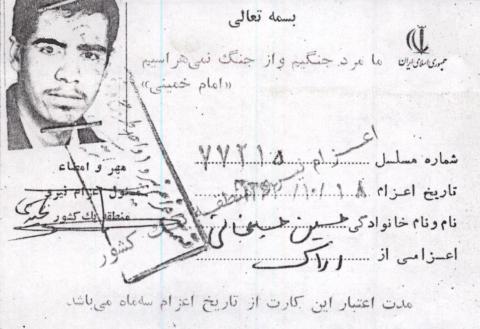 بسمه تعالی
جمهوری اسلامی ایران
ما مرد جنگیم و از جنگ نمی‌هراسیم
«امام خمینی»
شماره مسلسل ۷۷۲۱۵
تاریخ اعزام ۱۰/۱۸
نام و نام خانوادگی حسین
اعزامی از اراک
مهر و امضاء
مسئول اعزام نیرو
منطقه یک کشور
اعزام نیرو
منطقه
کشور
مدت اعتبار این کارت از تاریخ اعزام سه‌ماه می‌باشد